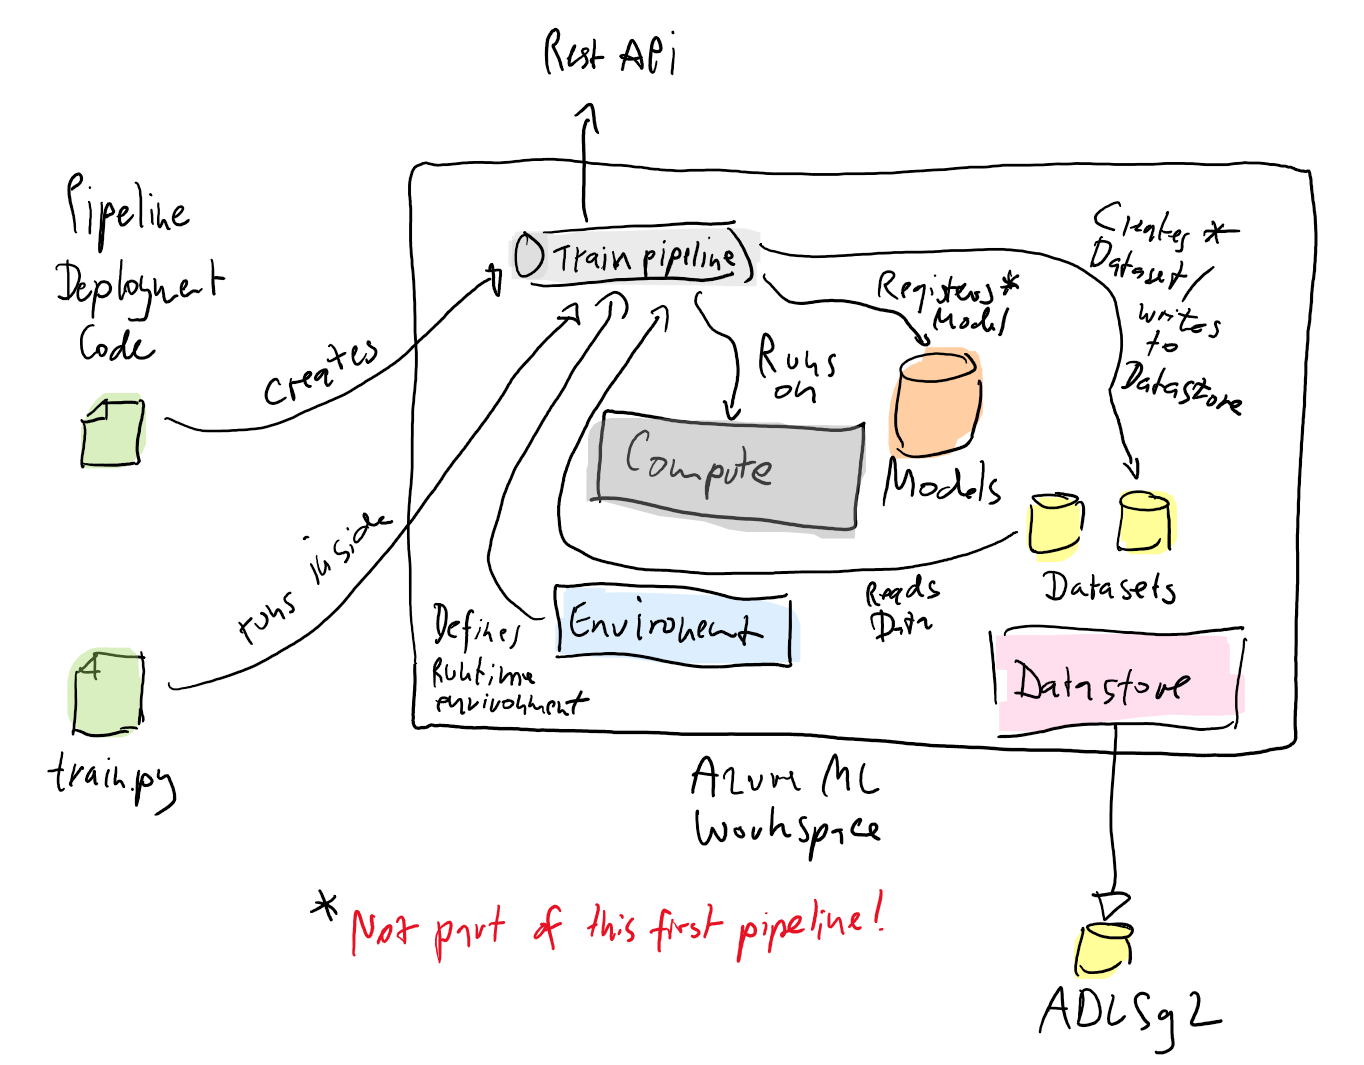 Rest API
Pipeline
Deployment
Code
Creates
Train pipeline
Registers*
Model
Creates *
Dataset/
writes
to
Datastore
Runs
on
Compute
Models
runs inside
Datasets
Reads
Data
Defines
Runtime
environment
Environment
Datastore
train.py
Azure ML
Workspace
* Not part of this first pipeline!
ADLSg2